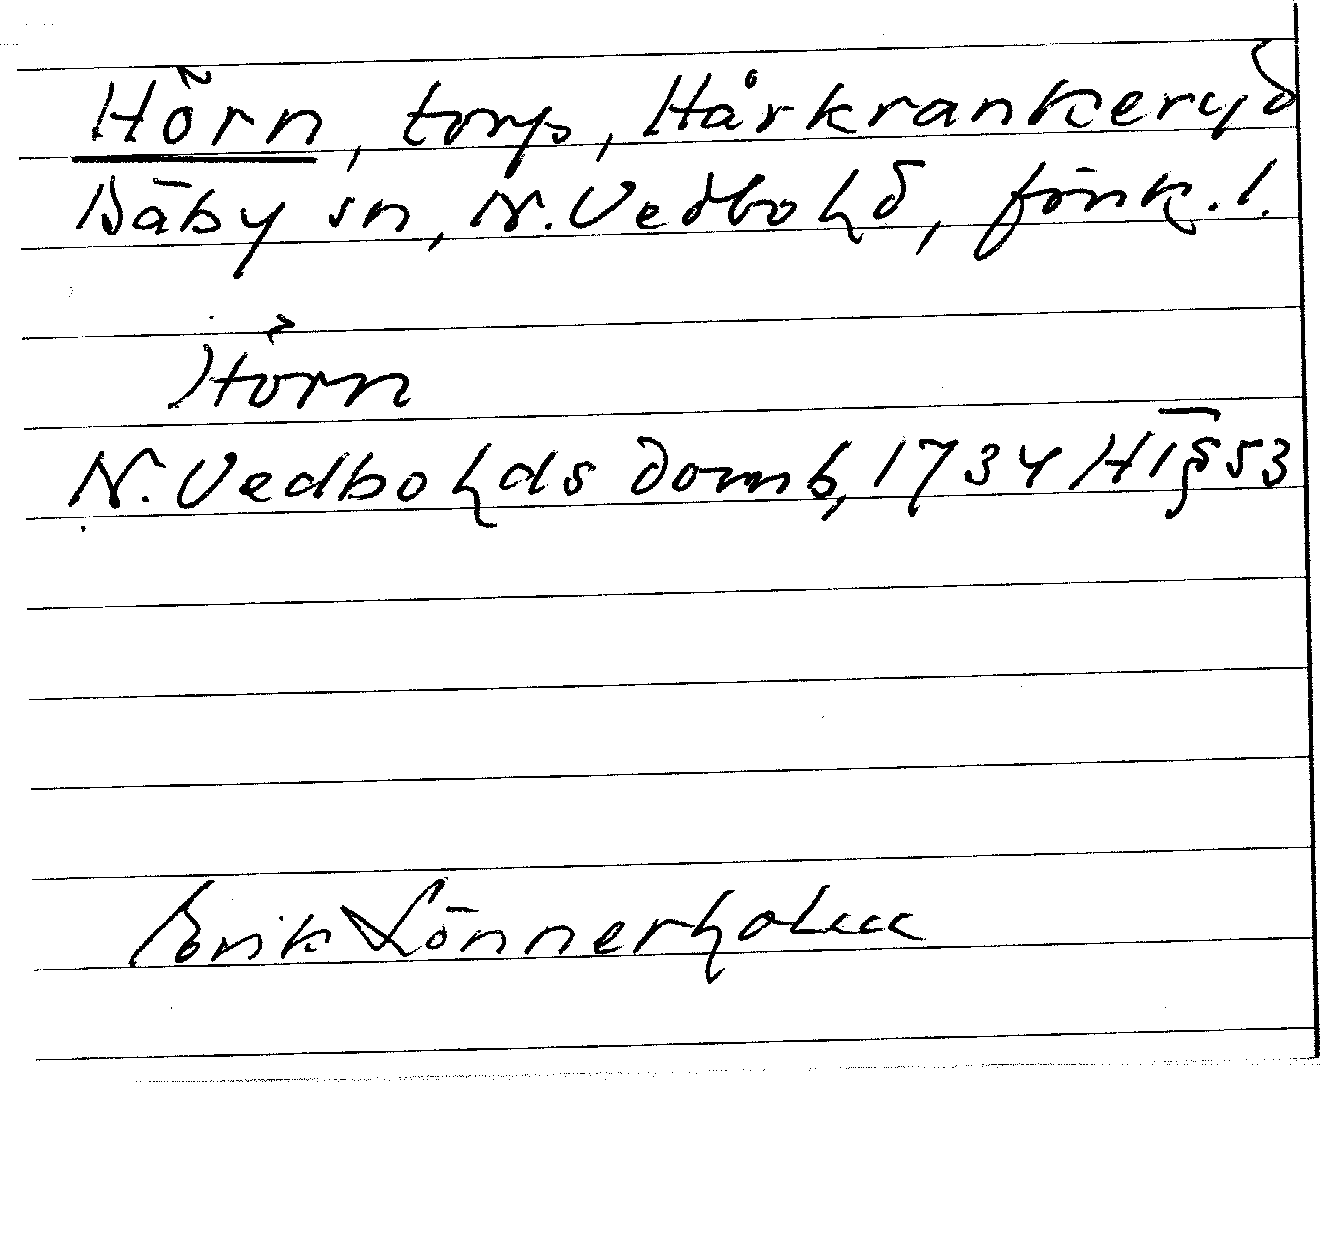 Hörn, torp, Hårkrankeryd
Bäby sn, N. Vedbohd, Jönk. l.
Hörn
N. Vedbohds domb, 1734 HT § 53
Erik Lönnerholm